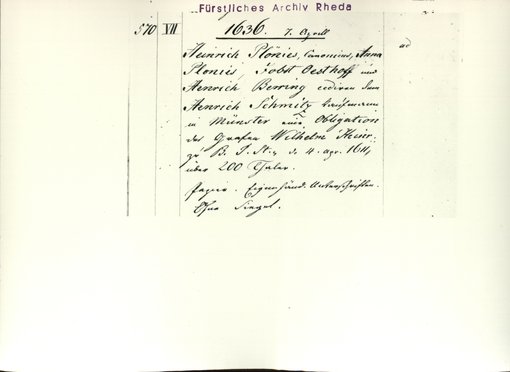 Fürstliches Archiv Rheda
570 VII 1636. 7. April
Heinrich Plönies, Canonicus, Anna
Plönies, Jobst Oesthoff und
Henrich Berning cediren dem
Henrich Schmitz Kaufmann
in Münster eine Obligation
des Grafen Wilhelm Heinr.
zu B. T. St., d. 4. Apr. 1611,
über 200 Thaler.
Papier. Eigenhänd. Unterschriften.
Ohne Siegel.